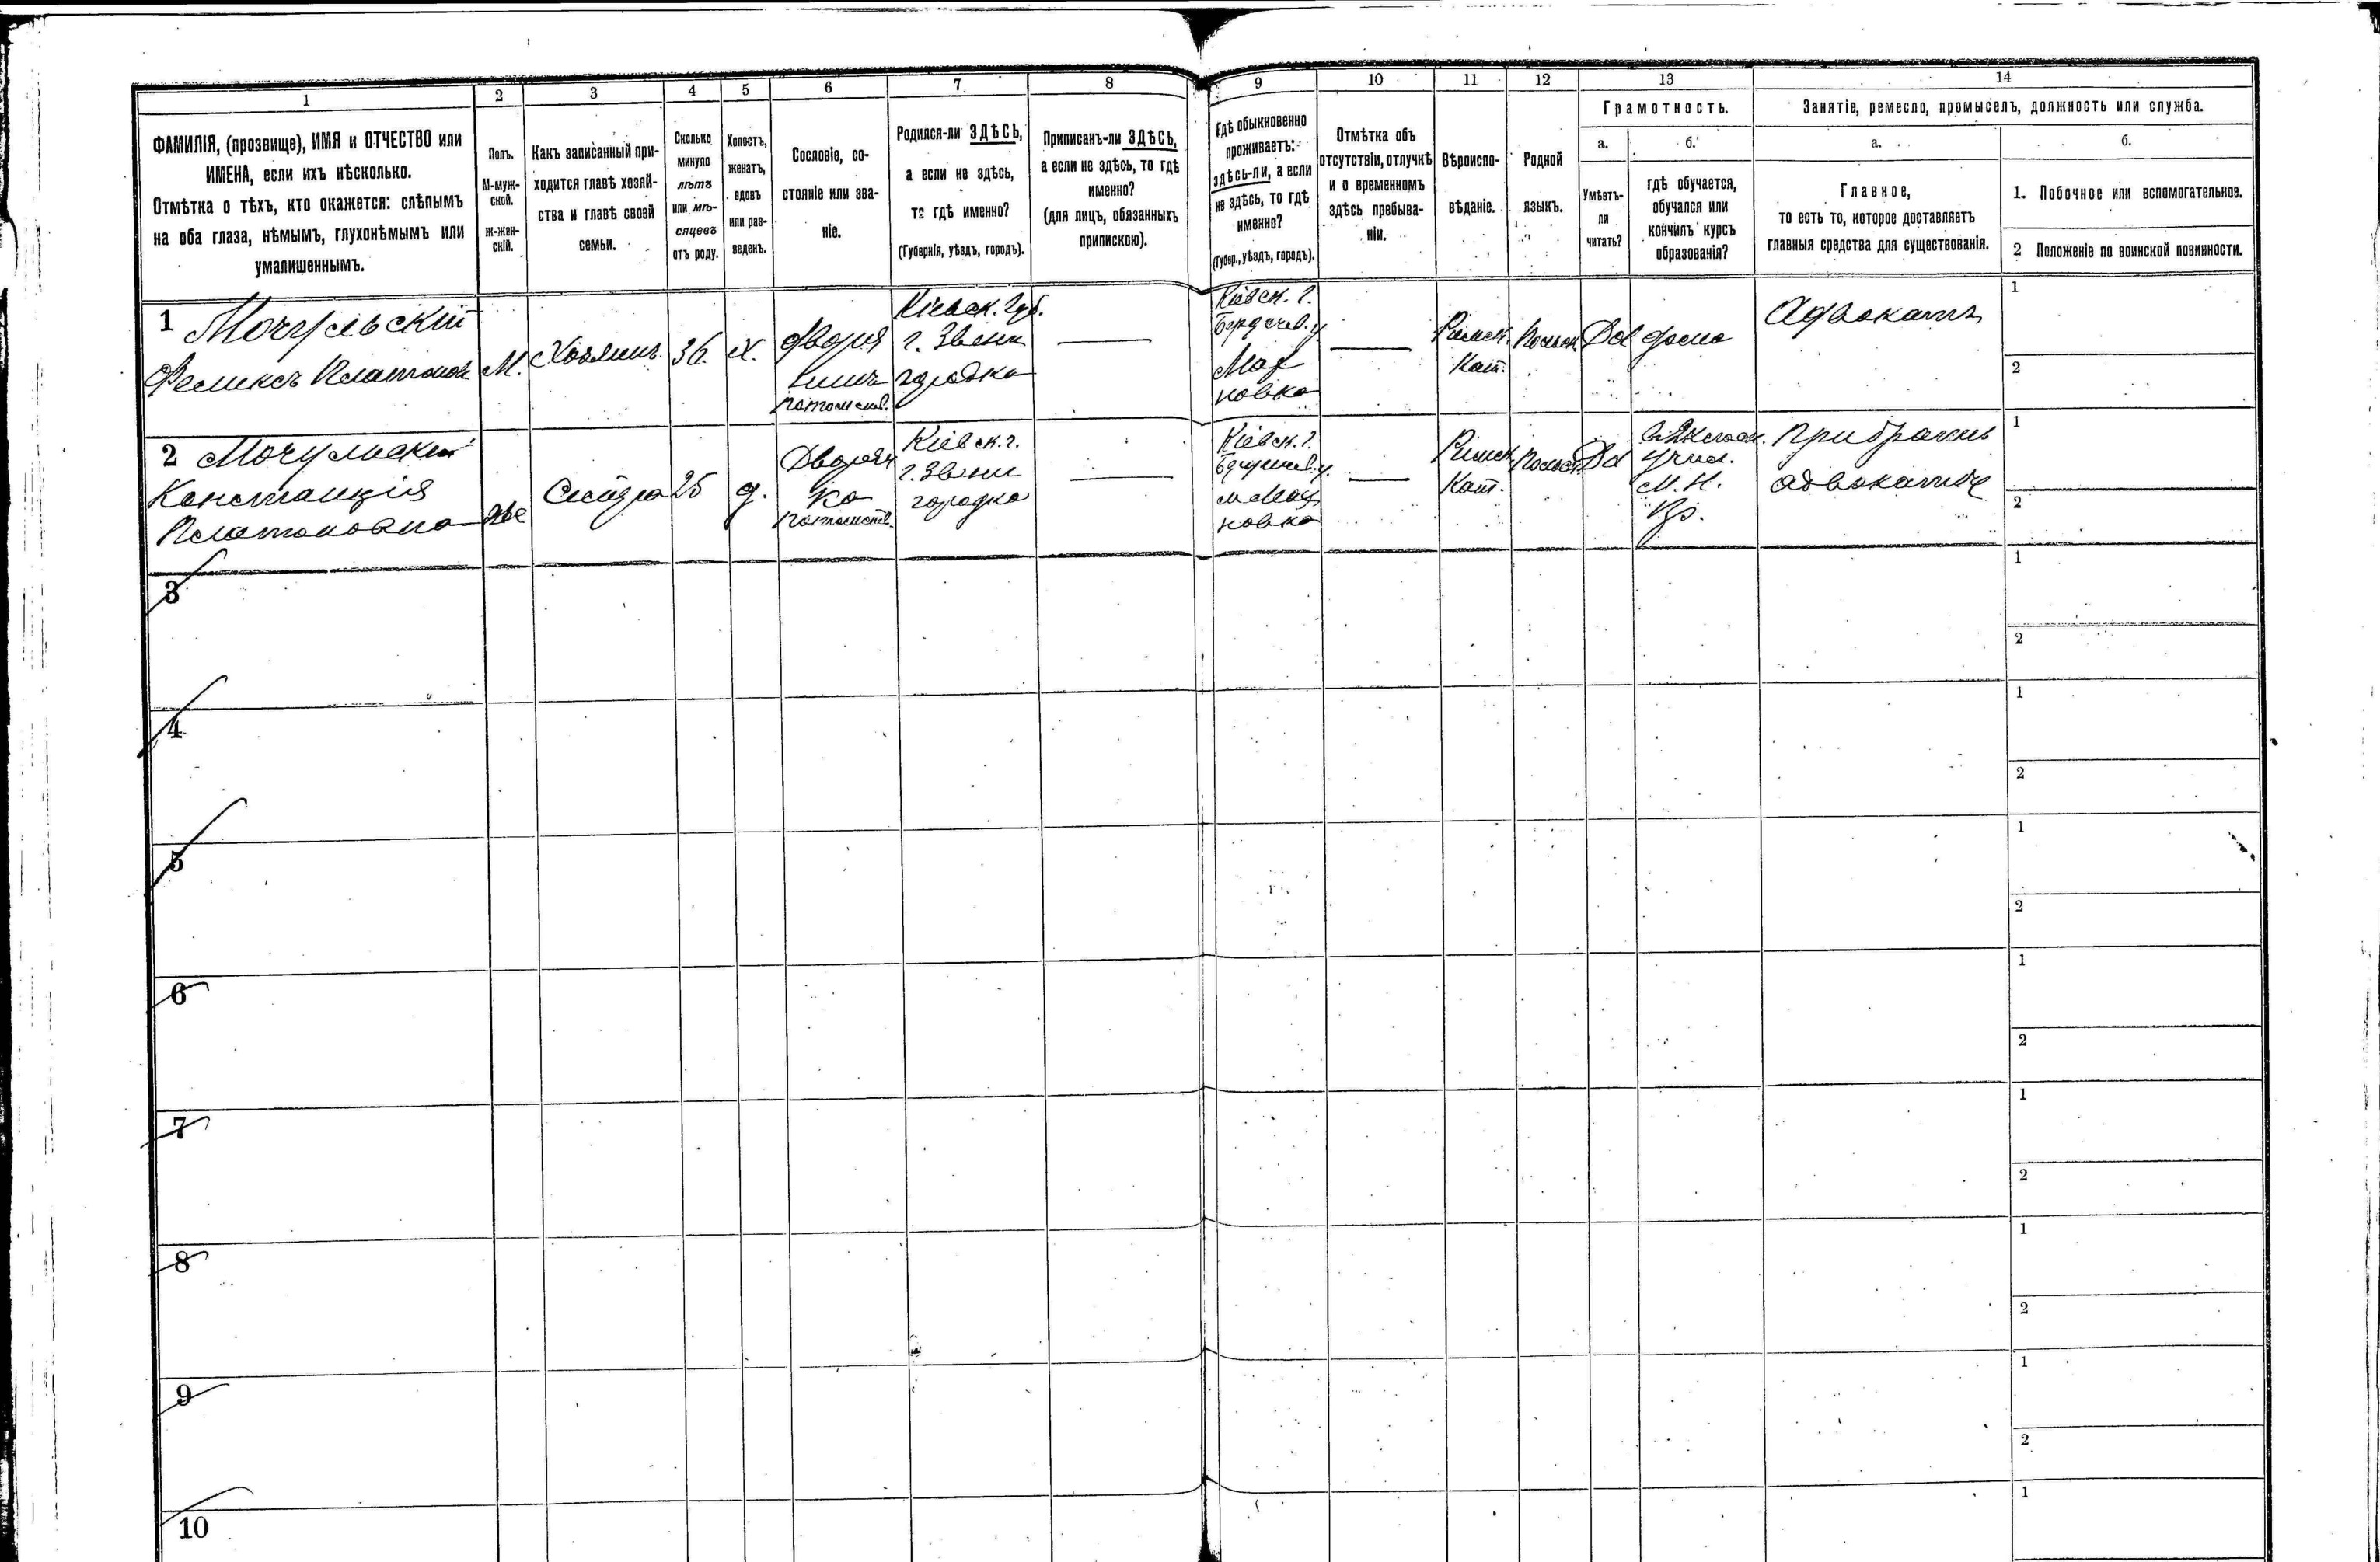 1 2 3 4 5 6 7 8 9 10 11 12 13 14
ФАМИЛІЯ, (прозвище), ИМЯ и ОТЧЕСТВО или
ИМЕНА, если ихъ нѣсколько.
Отмѣтка о тѣхъ, кто окажется: слѣпымъ
на оба глаза, нѣмымъ, глухонѣмымъ или
умалишеннымъ.
Полъ.
М-муж-
ской.
ж-жен-
скій.
Какъ записанный при-
ходится главѣ хозяй-
ства и главѣ своей
семьи.
Сколько
минуло
лѣтъ
или мѣ-
сяцевъ
отъ роду.
Холостъ,
женатъ,
вдовъ
или раз-
веденъ.
Сословіе, со-
стояніе или зва-
ніе.
Родился-ли ЗДѢСЬ,
а если не здѣсь,
то гдѣ именно?
(Губернія, уѣздъ, городъ).
Приписанъ-ли ЗДѢСЬ,
а если не здѣсь, то гдѣ
именно?
(для лицъ, обязанныхъ
припискою).
Гдѣ обыкновенно
проживаетъ:
здѣсь-ли, а если
не здѣсь, то гдѣ
именно?
(Губер., уѣздъ, городъ).
Отмѣтка объ
отсутствіи, отлучкѣ
и о временномъ
здѣсь пребыва-
ніи.
Вѣроиспо-
вѣданіе.
Родной
языкъ.
Грамотность.
а.
Умѣетъ-
ли
читать?
б.
гдѣ обучается,
обучался или
кончилъ курсъ
образованія?
Занятіе, ремесло, промыселъ, должность или служба.
а.
Главное,
то есть то, которое доставляетъ
главныя средства для существованія.
б.
1. Побочное или вспомогательное.
2 Положеніе по воинской повинности.
1 Мочульскій
Феликсъ Платонов
М.
Хозяинъ
36
х.
дворя
нинъ
потомств.
Кіевск. Губ.
г. Звени
городка
Кіевск. г.
Бердичев. у
Мах
новка
Римск.
Кат.
Польск
Да
дома
Адвокатъ
1
2
2 Мочульская
Констанція
Платоновна
же
Сестра
25
д.
Дворян
ка
потомств.
Кіевск. г.
г. Звени
городка
Кіевск. г.
Бердичев. у.
м Мах
новка
Римск
Кат.
Польск
Да
учил.
М. Н.
Пр.
При братѣ
адвокатѣ
1
2
3
1
2
4
1
2
5
1
2
6
1
2
7
1
2
8
1
2
9
1
2
10
1